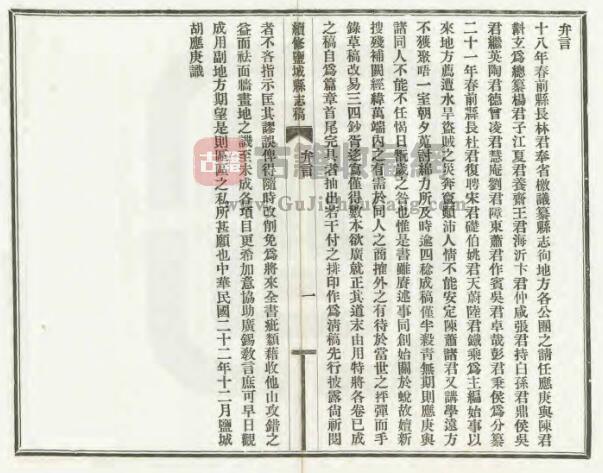 弁言
十八年春前縣長林君奉省檄議纂縣志徇地方各公團之請任應庚與陳君
斠玄爲總纂楊君子江夏君養齋王君海沂卞君仲咸張君持白孫君鼎侯吳
君繼英陶君德曾凌君慧庵劉君障東蕭君作賓吳君卓哉彭君秉侯爲分纂
二十一年春前縣長杜君復聘宋君礎伯姚君天蔚陸君鐵乘爲主編始事以
來地方薦遭水旱盜賊之災奔竄顚沛人情不能安定陳蕭諸君又講學遠方
不獲聚唔一室朝夕蒐討綿力所及時逾四稔成稿僅半殺青無期則應庚與
諸同人不能不任愒日翫歲之咎也惟是書雖賡述事同創始關於蛻故嬗新
搜殘補闕經緯萬端内之有需於同人之商搉外之有待於當世之抨彈而手
錄草稿改易三四鈔胥迻寫僅得數本欲廣就正其道末由用特將各卷已成
之稿自爲篇章首尾完具者抽出若干付之排印作爲清稿先行披露尙祈閎
續修鹽城縣志稿
弁言
一
者不吝指示匡其謬誤俾得隨時改削免爲將來全書疵纇藉收他山攻錯之
益而祛面牆畫地之譏至未成各項目更希加意協助廣錫教言庶可早日觀
成用副地方期望是則區區之私所甚願也中華民國二十二年十二月鹽城
胡應庚識
古籍收藏網
www.GuJiShuCang.com